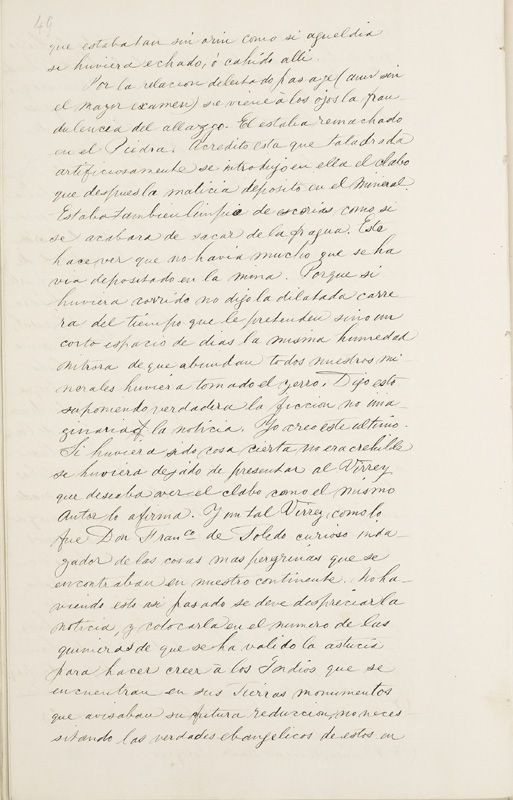 49
que estaba tan sin orin como si aquel dia
se huviera echado, ó cahido alli.
Por la relacion del citado pasage (aun sin
el mayor examen) se viene á los ojos la frau
dulencia del allazgo. El estaba remachado
en el Piedra. Acredito esta que taladrada
artificiosamente se introdujo en ella el clabo
que despues la malicia deposito en el mineral.
Estaba tambien limpio de escorias como si
se acabara de sacar de la fragua. Esto
hace ver que no havia mucho que se ha
via depositado en la mina. Porque si
huviera corrido no dijo la dilatada carre
ra del tiempo que le pretenden sino un
corto espacio de dias la misma humedad
nitrosa de que abundan todos nuestros mi-
nerales huviera tomado el yerro. Dijo esto
suponiendo verdadera la ficcion no ima-
ginaria la noticia. Yo creo este ultimo.
Si huviera sido cosa cierta no era crehible
se huviera dejado de presentar al Virrey
que deseaba ver el clabo como el mismo
Autor lo afirma. Y un tal Virrey, como lo
fue Don Franco. de Toledo curioso inda
gador de las cosas mas peregrinas que se
encontraban en nuestro continente. No ha-
viendo esto asi pasado se deve despreciar la
noticia y colocarla en el numero de las
quimeras de que se ha valido la astucia
para hacer creer á los Indios que se
encuentran en sus Tierras monumentos
que avisaban su futura reduccion, no neces-
sitando las verdades ebangelicos de estos en